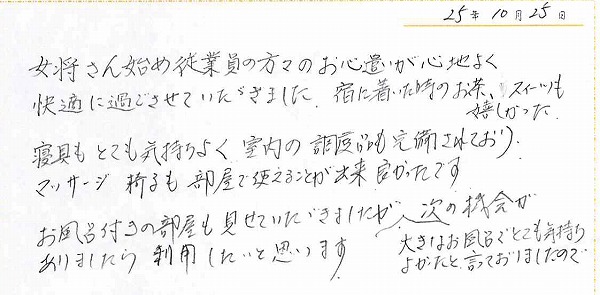 25年10月25日
女将さん始め従業員の方々のお心遣いが心地よく
快適に過ごさせていただきました。宿に着いた時のお茶、スイーツも
嬉しかった
寝具もとても気持ちよく 室内の調度品も完備されており、
マッサージ椅子も部屋で使えることが出来良かったです
お風呂付きの部屋も見せていただきましたが 次の機会が
大きなお風呂でとても気持ち
よかたと言っておりましたので
ありましたら利用したいと思います